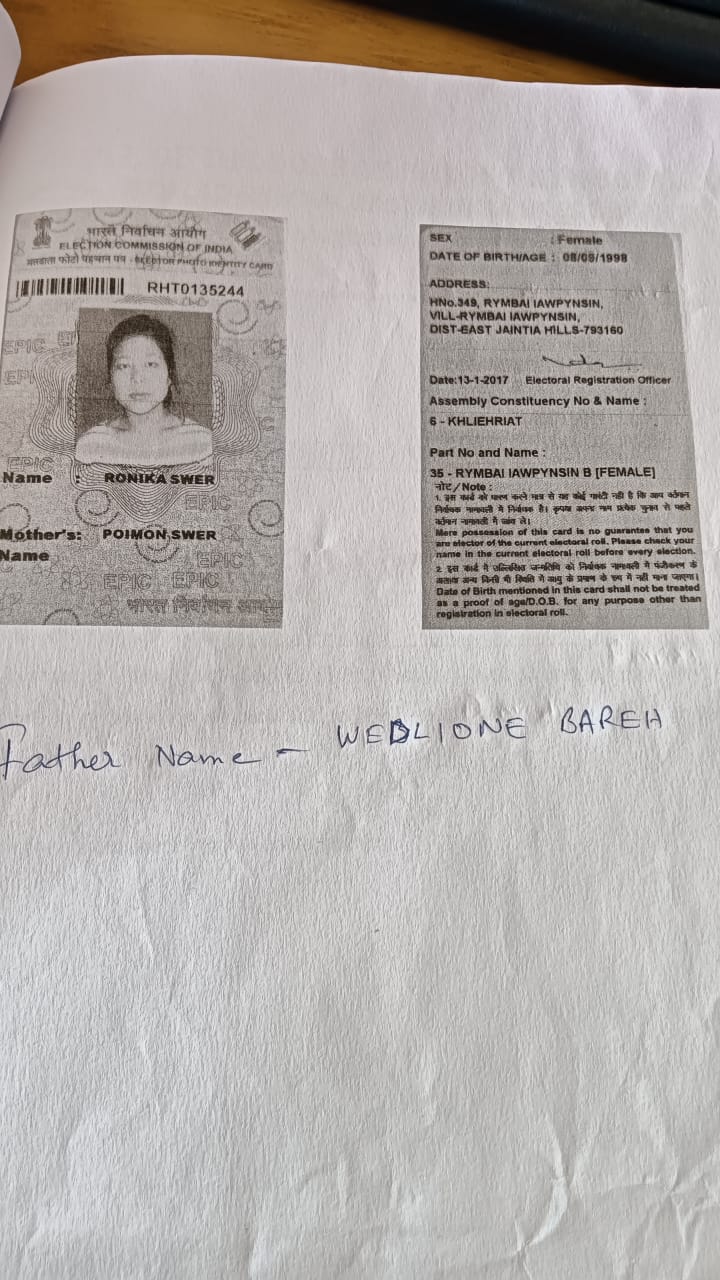 भारत निर्वाचन आयोग
ELECTION COMMISSION OF INDIA
मतदाता फोटो पहचान पत्र - ELECTOR PHOTO IDENTITY CARD
RHT0135244
EPIC
EPIC
Name : RONIKA SWER
EPIC
Mother's: POIMON SWER
Name
EPIC
EPIC EPIC
भारत निर्वाचन
SEX : Female
DATE OF BIRTH/AGE : 08/08/1998
ADDRESS:
HNo.349, RYMBAI IAWPYNSIN,
VILL-RYMBAI IAWPYNSIN,
DIST-EAST JAINTIA HILLS-793160
Date:13-1-2017 Electoral Registration Officer
Assembly Constituency No & Name :
6 - KHLIEHRIAT
Part No and Name :
35 - RYMBAI IAWPYNSIN B [FEMALE]
नोट / Note :
1. इस कार्ड को धारण करने मात्र से यह कोई गारंटी नही है कि आप वर्तमान
निर्वाचक नामावली में निर्वाचक है। कृपया अपना नाम प्रत्येक चुनाव से पहले
वर्तमान नामावली में जांच ले।
Mere possession of this card is no guarantee that you
are elector of the current electoral roll. Please check your
name in the current electoral roll before every election.
2. इस कार्ड में उल्लिखित जन्मतिथि को निर्वाचक नामावली में पंजीकरण के
अलावा अन्य किसी भी स्थिति में आयु के प्रमाण के रूप में नहीं माना जाएगा।
Date of Birth mentioned in this card shall not be treated
as a proof of age/D.O.B. for any purpose other than
registration in electoral roll.
Father Name - WEDLIONE BAREH